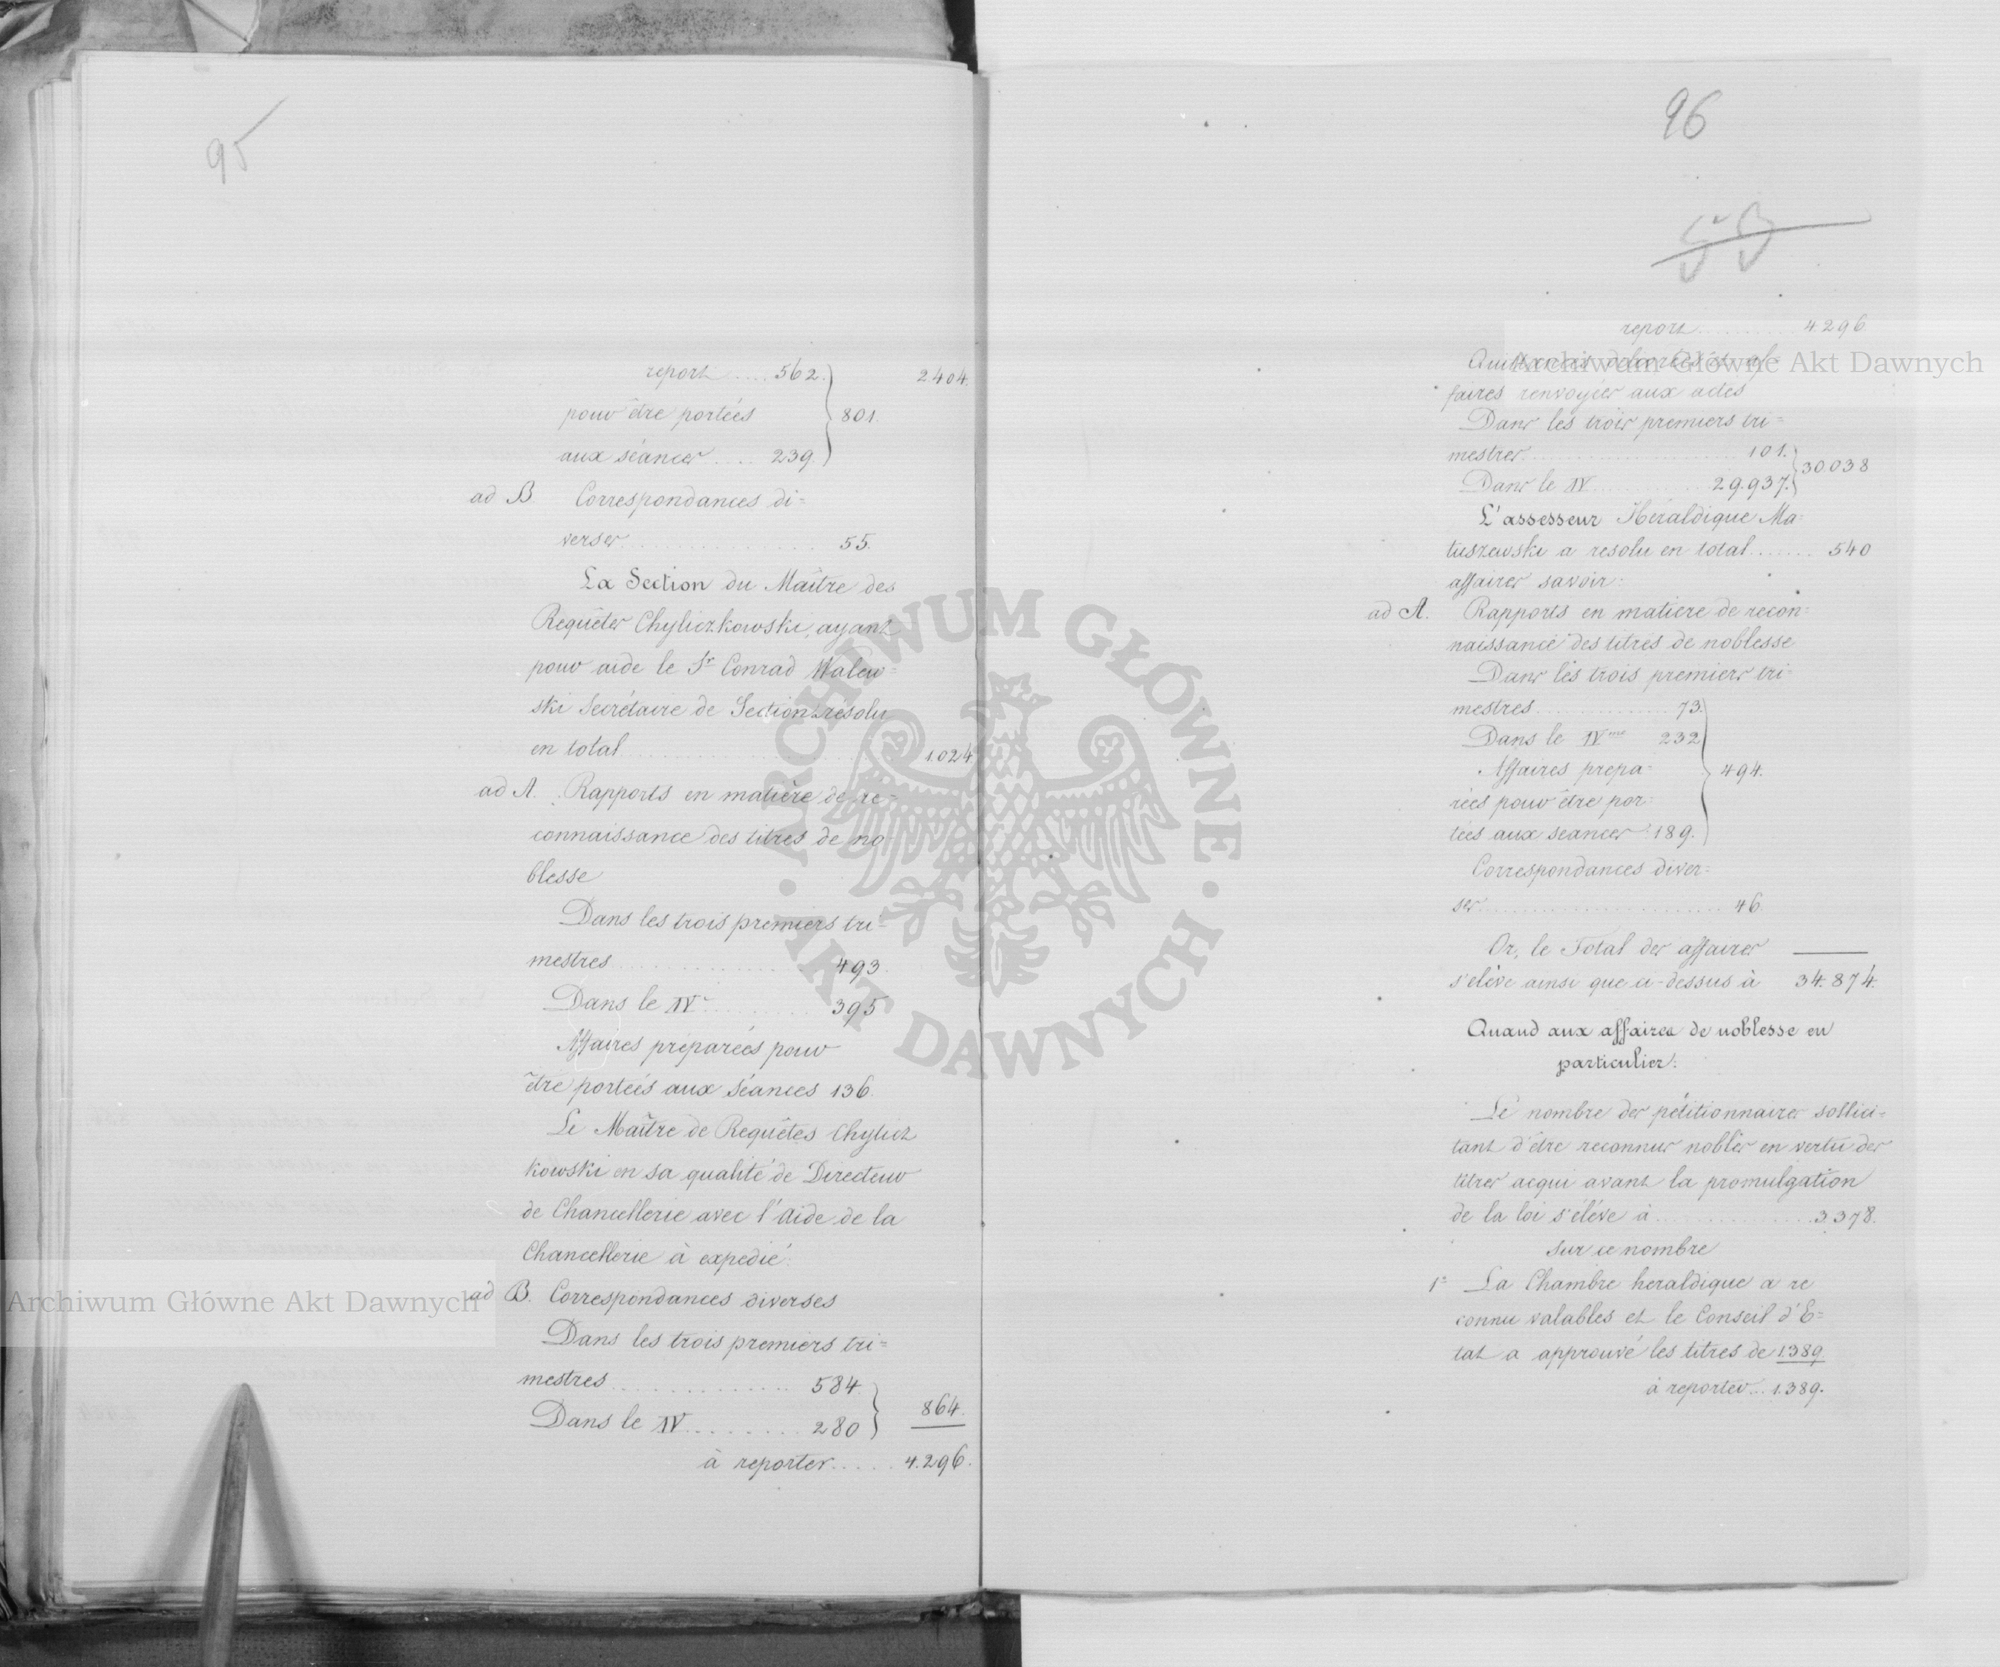 95
report .... 562. 2404.
pour être portées 801.
aux séances .... 239.
ad B Correspondances di=
verses ............ 55.
La Section du Maître des
Requêtes Chyliczkowski, ayant
pour aide le Sr Conrad Walew=
ski Secrétaire de Section résolu
en total ............ 1.024
ad A. Rapports en matière de re=
connaissance des titres de no=
blesse
Dans les trois premiers tri=
mestres ............ 493.
Dans le IV ......... 395
Affaires préparées pour
être portées aux séances 136.
Le Maître de Requêtes Chylicz
kowski en sa qualité de Directeur
de Chancellerie avec l'Aide de la
Chancellerie à expedié:
ad B. Correspondances diverses
Dans les trois premiers tri=
mestres ............ 584
Dans le IV ......... 280 864.
à reporter ..... 4.296.
96
report .......... 4.296.
faires renvoyées aux actes
Dans les trois premiers tri=
mestres ............ 101. 30.038
Dans le IV ......... 29.937.
L'assesseur Héraldique Ma=
tuszewski a resolu en total ....... 540
affaires savoir:
ad A. Rapports en matiere de recon=
naissance des titres de noblesse
Dans les trois premiers tri=
mestres ............ 73.
Dans le IVme 232
Affaires prepa= 494.
rées pour être por=
tées aux seances 189.
Correspondances diver=
ses ............ 46.
Or, le Total des affaires
s'élève ainsi que ci-dessus à 34.874.
Quand aux affaires de noblesse en
particulier:
Le nombre des pétitionnaires sollici=
tant d'être reconnus nobles en vertu des
titres acqui avant la promulgation
de la loi s'élève à ............ 3.378.
Sur ce nombre
1° La Chambre heraldique a re
connu valables et le Conseil d'E=
tat a approuvé les titres de 1.389.
à reporter ... 1.389.
Archiwum Główne Akt Dawnych
Archiwum Główne Akt Dawnych
ARCHIWUM GŁÓWNE
AKT DAWNYCH